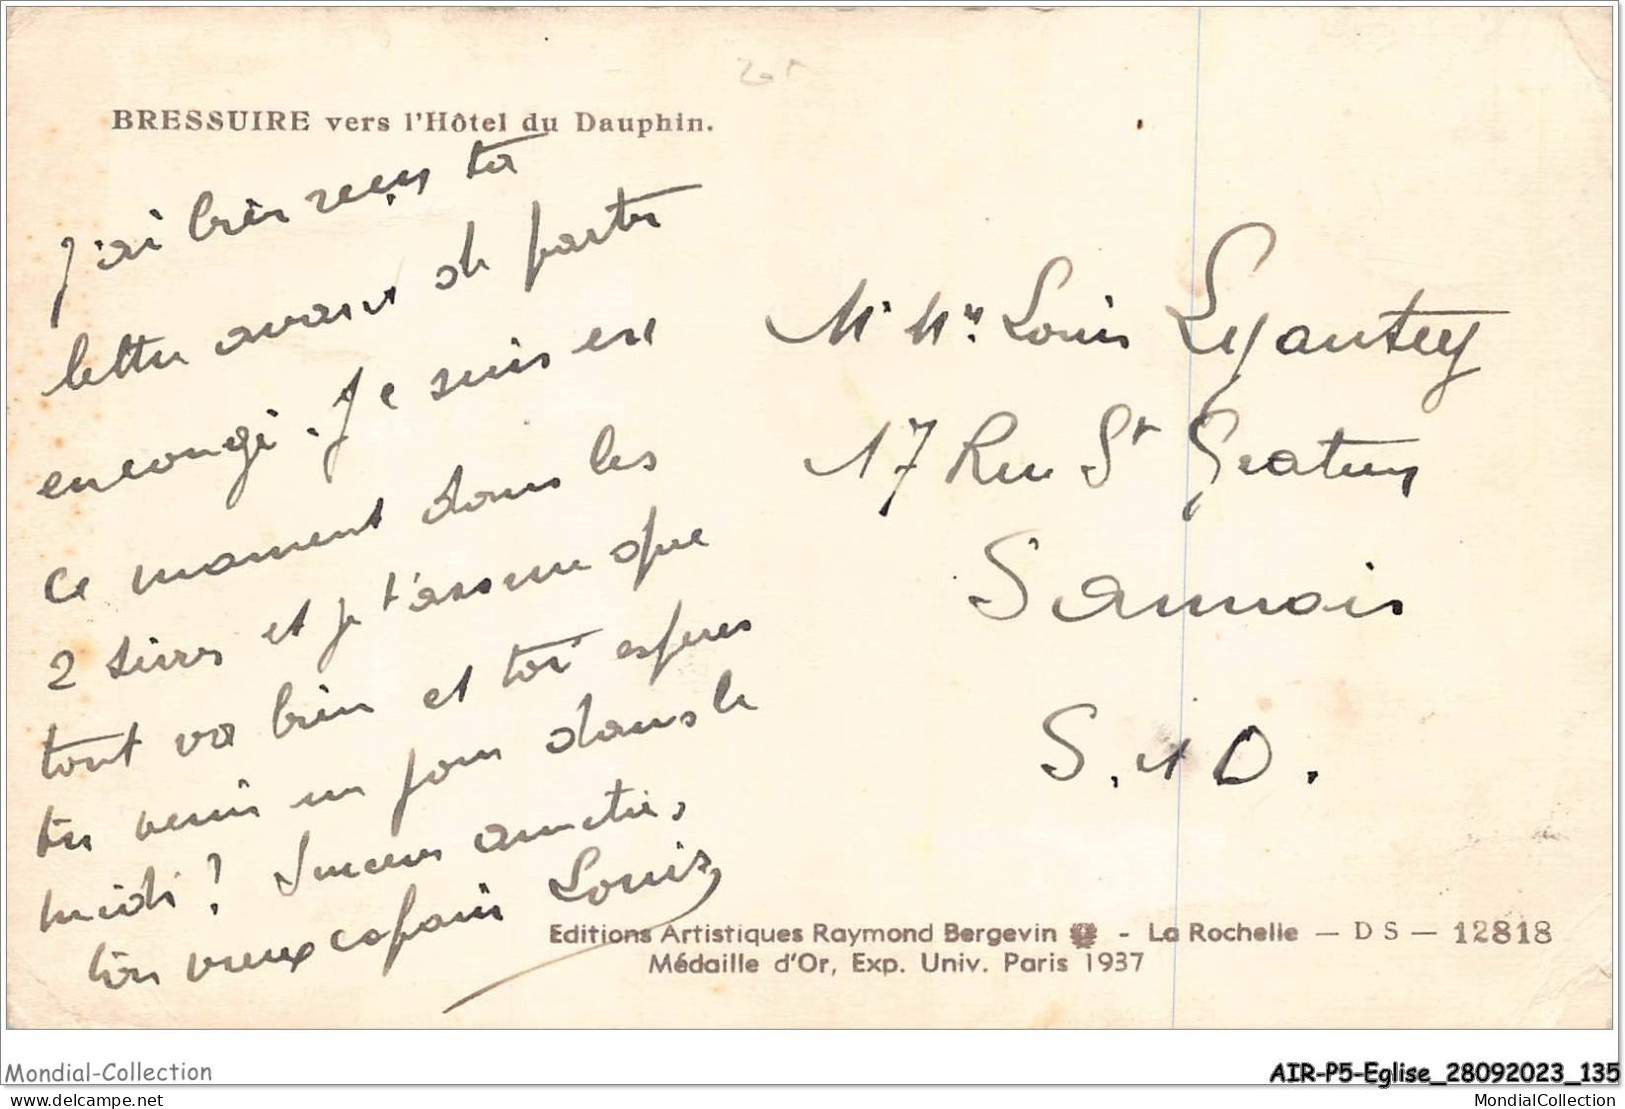 BRESSUIRE vers l'Hôtel du Dauphin.
J'ai bien reçu ta
lettre avant de partir
en congé. Je suis en
ce moment dans les
2 Sèvres et je t'assure que
tout va bien et toi esperes
tu venir un jour dans le
midi? Sincères amitiés,
ton vieux copain Louis
Mr Mme Louis Lyautey
17 Rue St Gratien
Sannois
S. et O.
Editions Artistiques Raymond Bergevin - La Rochelle — D S — 12818
Médaille d'Or, Exp. Univ. Paris 1937
Mondial-Collection
AIR-P5-Eglise_28092023_135
delcampe.net
MondialCollection